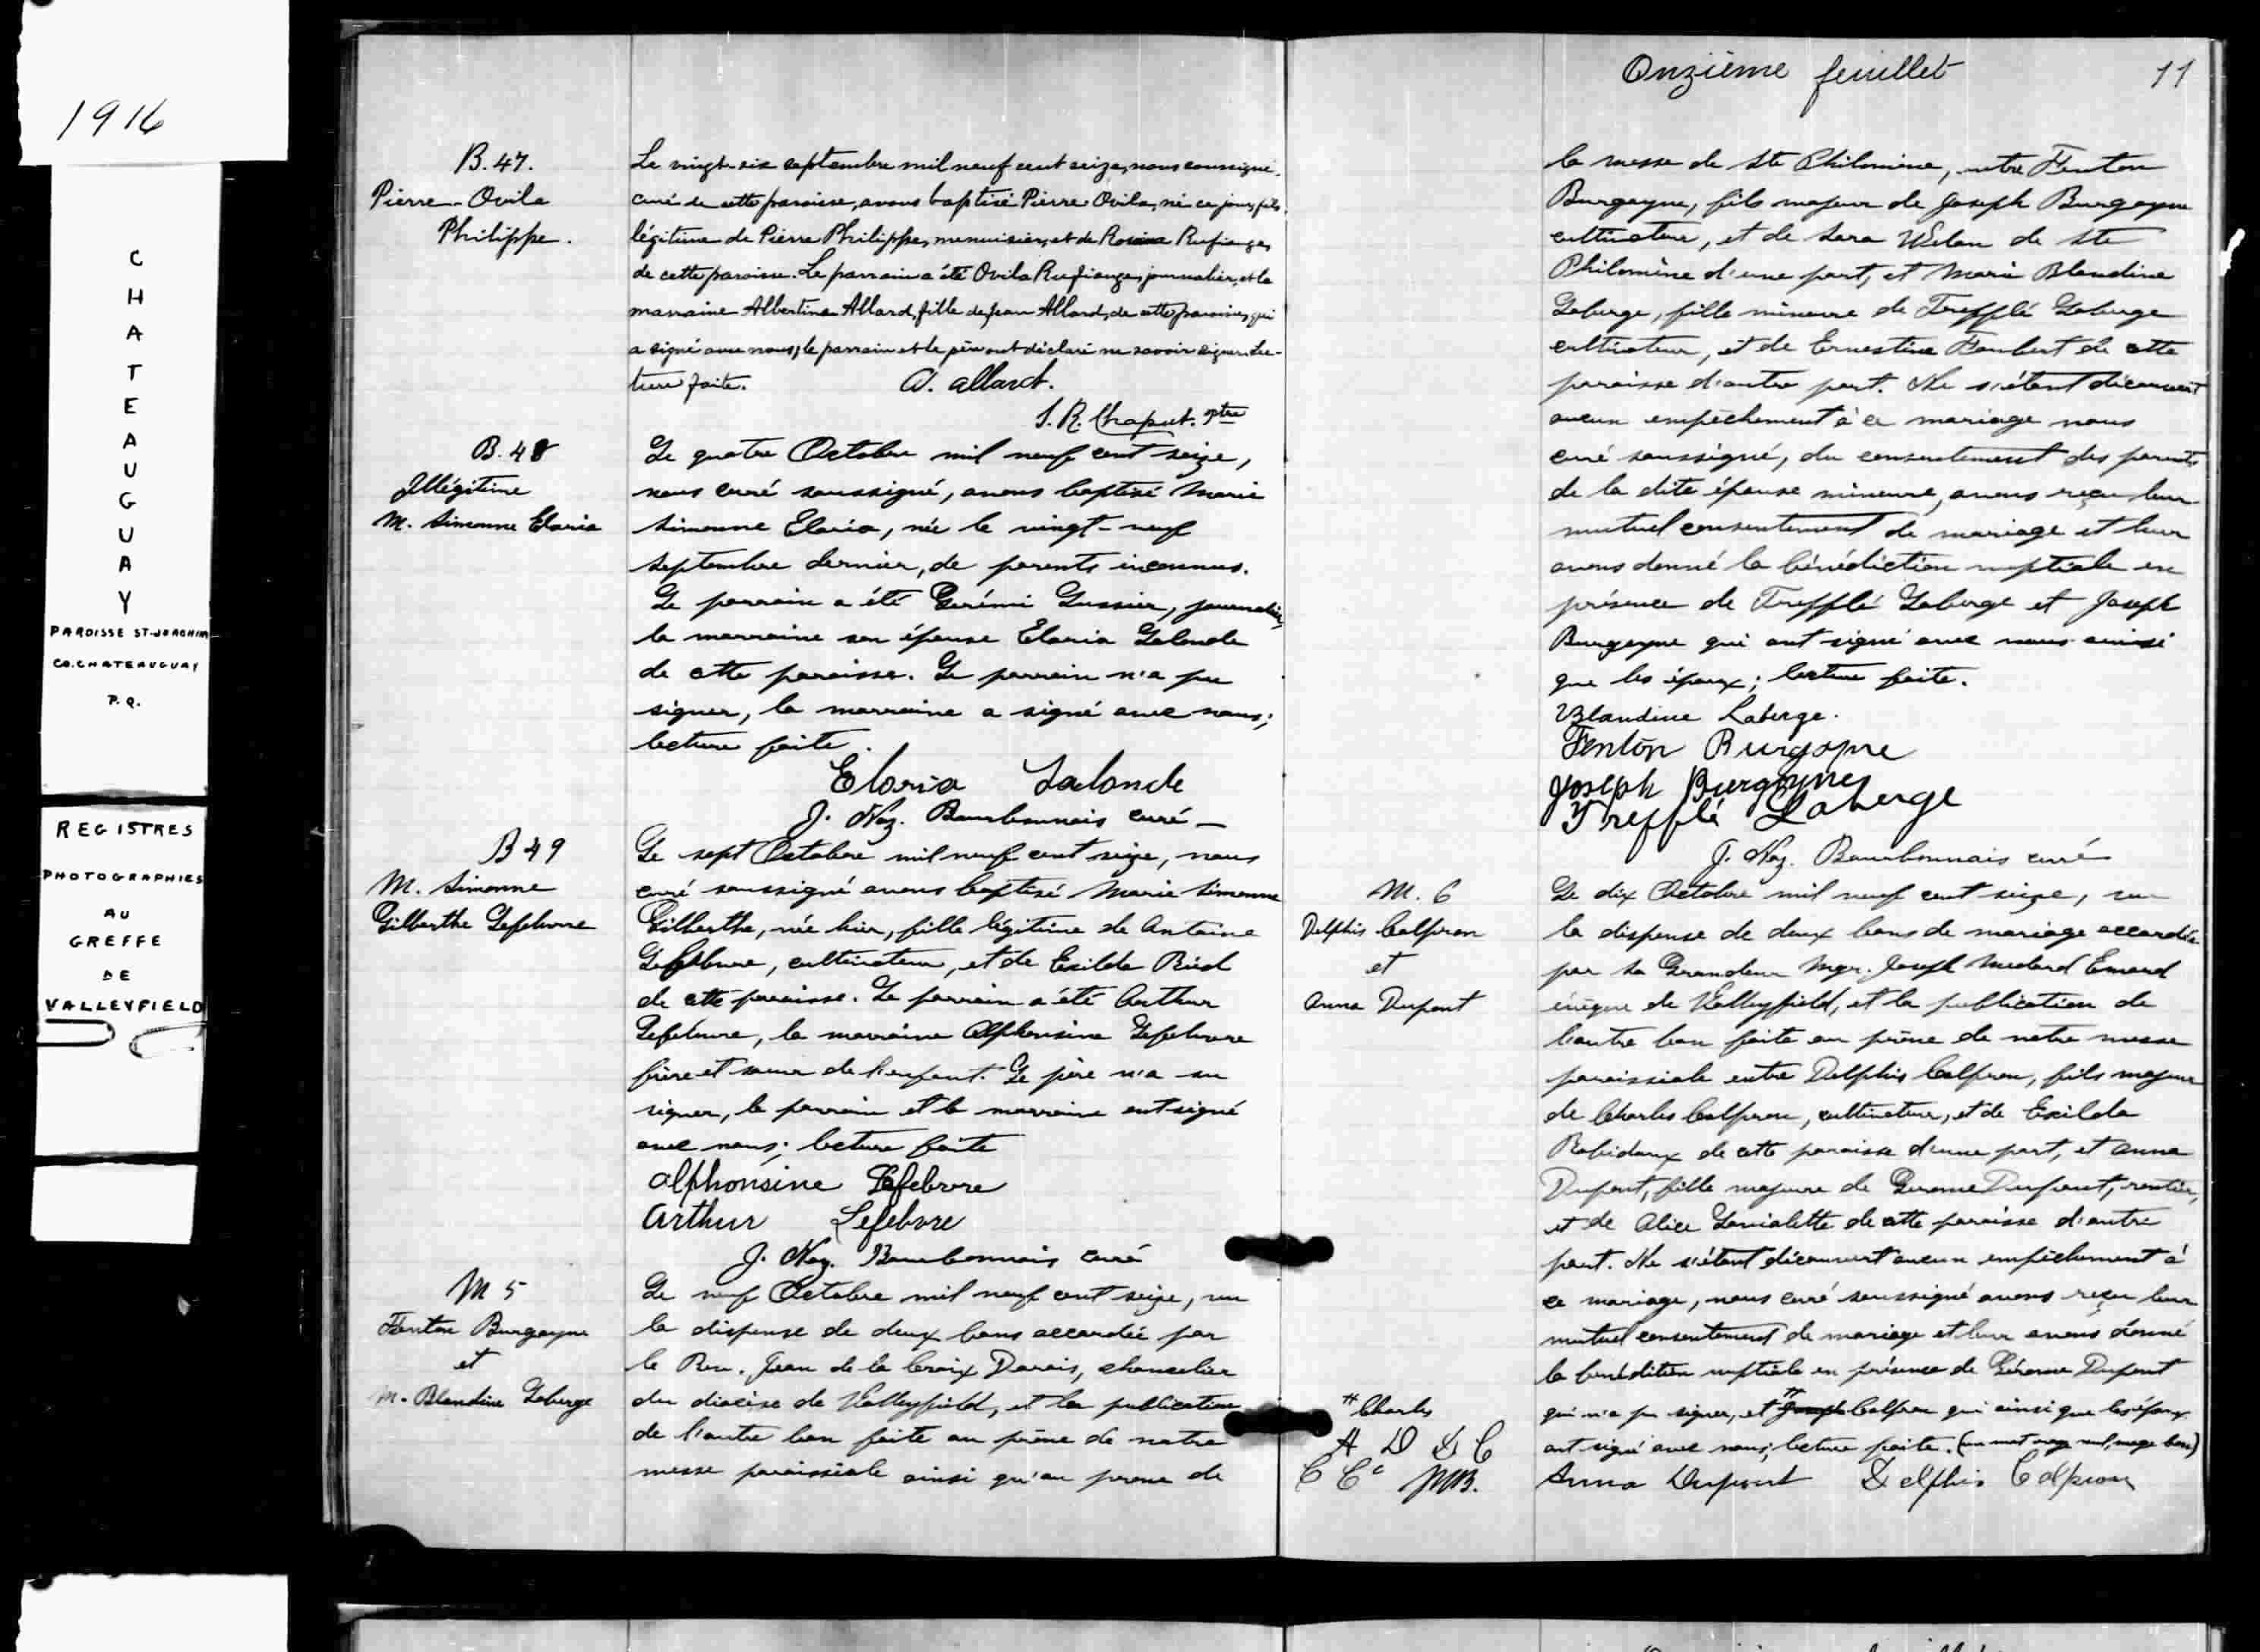 1916
CHATEAUGUAY
PAROISSE ST-JOACHIM
CO. CHATEAUGUAY
P.Q.
REGISTRES
PHOTOGRAPHIES
AU
GREFFE
DE
VALLEYFIELD
B. 47.
Pierre-Ovila
Philippe.
Le vingt-six septembre mil neuf cent seize, nous soussigné,
curé de cette paroisse, avons baptisé Pierre Ovila, né ce jour, fils
légitime de Pierre Philippe, menuisier, et de Rosina Rufiange,
de cette paroisse. Le parrain a été Ovila Rufiange, journalier, et la
marraine Albertina Allard, fille de Jean Allard, de cette paroisse, qui
a signé avec nous; le parrain et le père ont déclaré ne savoir signer. Lec-
ture faite.
A. Allard.
S. R. Chaput. ptre
B. 48
Illégitime
M. Simonne Eloria
Le quatre Octobre mil neuf cent seize,
nous curé soussigné, avons baptisé Marie
Simonne Eloria, née le vingt-neuf
Septembre dernier, de parents inconnus.
Le parrain a été Gérémi Lussier, journalier,
la marraine son épouse Eloria Lalonde
de cette paroisse. Le parrain n'a pu
signer, la marraine a signé avec nous;
lecture faite.
Eloria Lalonde
J. Naz. Bourbonnais curé
B 49
M. Simonne
Gilberthe Lefebvre
Le sept Octobre mil neuf cent seize, nous
curé soussigné avons baptisé Marie Simonne
Gilberthe, née hier, fille légitime de Antoine
Lefebvre, cultivateur, et de Exilda
de cette paroisse. Le parrain a été Arthur
Lefebvre, la marraine Alphonsine Lefebvre
frère et soeur de l'enfant. Le père n'a su
signer, le parrain et la marraine ont signé
avec nous; lecture faite
Alphonsine Lefebvre
Arthur Lefebvre
J. Naz. Bourbonnais curé
M 5
Fenton Burgoyne
et
M. Blandine Laberge
Le neuf Octobre mil neuf cent seize, vu
la dispense de deux bans accordée par
le Rev. Jean de la Croix Dorais, chancelier
du diocèse de Valleyfield, et la publication
de l'autre ban faite au prône de notre
messe paroissiale ainsi qu'au prone de
Onzième feuillet 11
la messe de Ste Philomène, entre Fenton
Burgoyne, fils majeur de Joseph Burgoyne
cultivateur, et de Sara Welan de Ste
Philomène d'une part, et Marie Blandine
Laberge, fille mineure de Trefflé Laberge
cultivateur, et de Ernestine Foubert de cette
paroisse d'autre part. Ne s'étant découvert
aucun empêchement à ce mariage nous
curé soussigné, du consentement des parents
de la dite épouse mineure, avons reçu leur
mutuel consentement de mariage et leur
avons donné la bénédiction nuptiale en
présence de Trefflé Laberge et Joseph
Burgoyne qui ont signé avec nous ainsi
que les époux; lecture faite.
Blandine Laberge.
Fenton Burgoyne
Joseph Burgoyne
Trefflé Laberge
J. Naz. Bourbonnais curé
M. 6
Delphis Calpron
et
Anna Dupont
Le dix Octobre mil neuf cent seize, vu
la dispense de deux bans de mariage accordée
par Sa Grandeur Mgr. Joseph Medard Emard
évêque de Valleyfield, et la publication de
l'autre ban faite au prône de notre messe
paroissiale entre Delphis Calpron, fils majeur
de Charles Calpron, cultivateur, et de Exilda
Robidoux de cette paroisse d'une part, et Anna
Dupont, fille majeure de Gerome Dupont, rentier,
et de Alice Laviolette de cette paroisse d'autre
part. Ne s'étant découvert aucun empêchement à
ce mariage, nous curé soussigné avons reçu leur
mutuel consentement de mariage et leur avons donné
la bénédiction nuptiale en présence de Gérome Dupont
qui n'a pu signer, et Joseph Calpron qui ainsi que les époux
ont signé avec nous; lecture faite. (un mot rayé nul,
# Charles
A D D C
C C JNB.
Anna Dupont Delphis Calpron